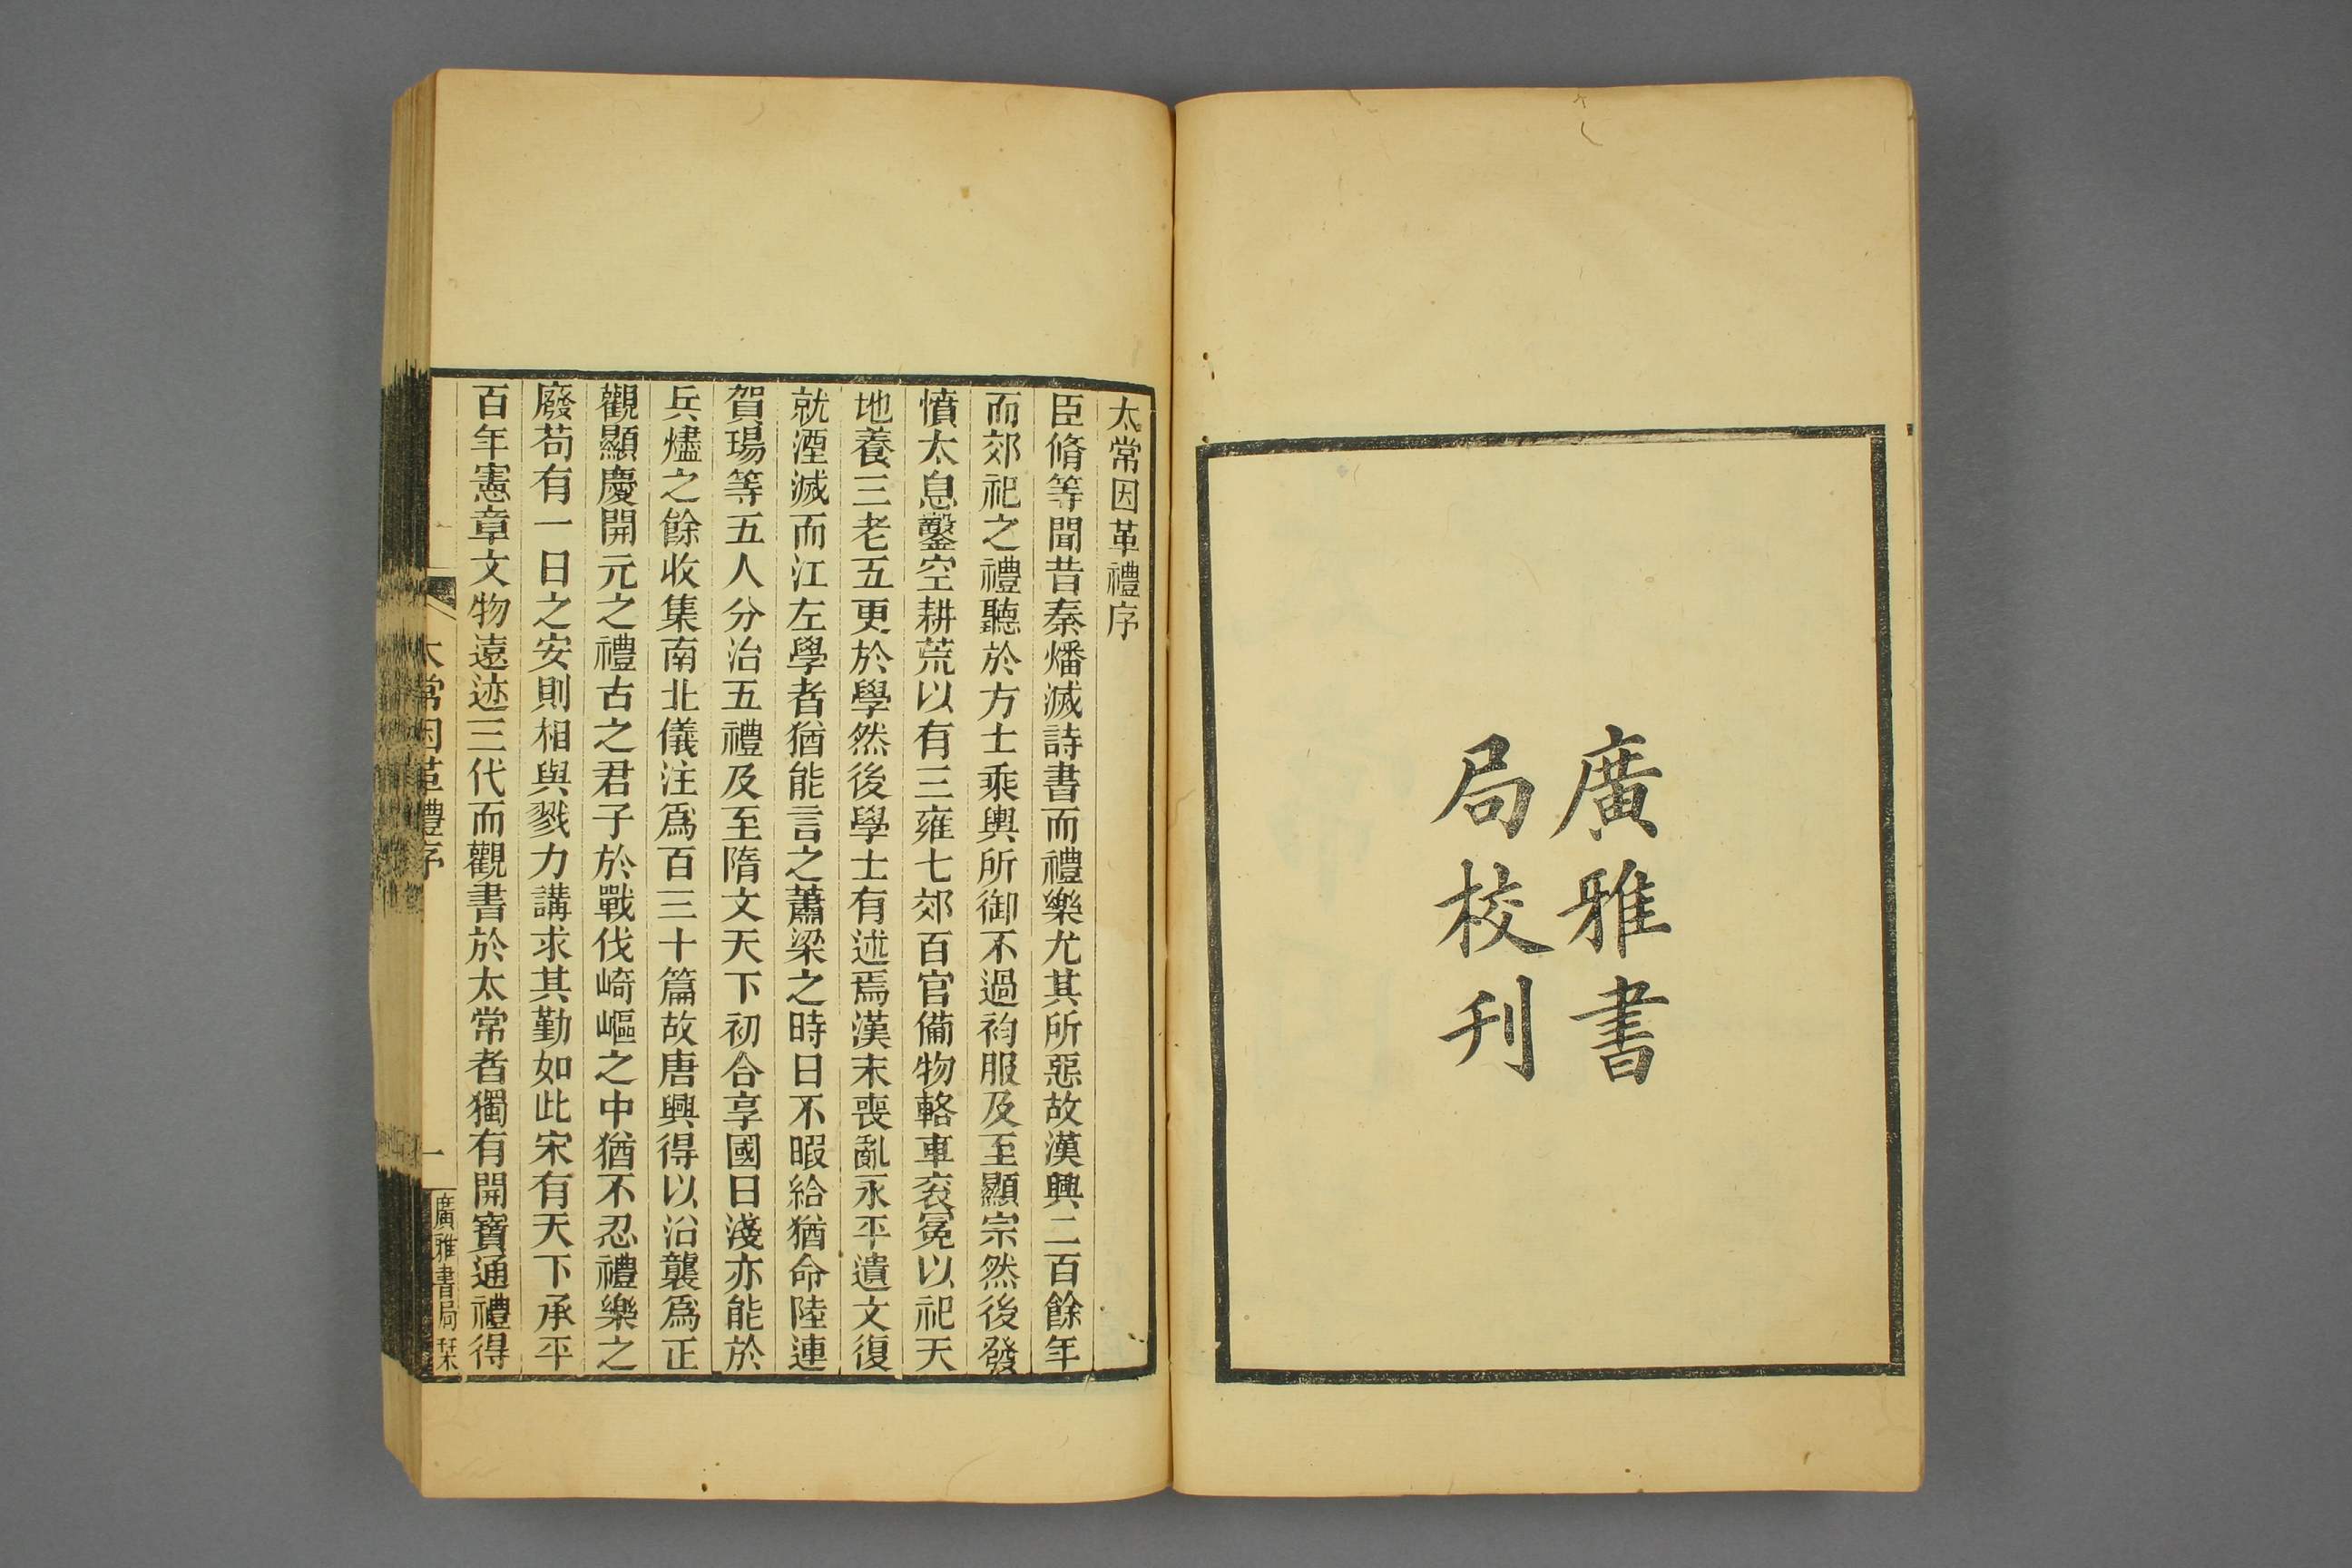 廣雅書
局校刊
太常因革禮序
臣脩等聞昔秦燔滅詩書而禮樂尤其所惡故漢興二百餘年
而郊祀之禮聽於方士乘輿所御不過袀服及至顯宗然後發
憤太息鑿空耕荒以有三雍七郊百官備物輅車衮冕以祀天
地養三老五更於學然後學士有述焉漢末喪亂永平遺文復
就湮滅而江左學者猶能言之蕭梁之時日不暇給猶命陸璉
賀瑒等五人分治五禮及至隋文天下初合享國日淺亦能於
兵燼之餘收集南北儀注爲百三十篇故唐興得以沿襲爲正
觀顯慶開元之禮古之君子於戰伐崎嶇之中猶不忍禮樂之
廢苟有一日之安則相與戮力講求其勤如此宋有天下承平
百年憲章文物遠迹三代而觀書於太常者獨有開寶通禮得
太常因革禮序
一
廣雅書局栞